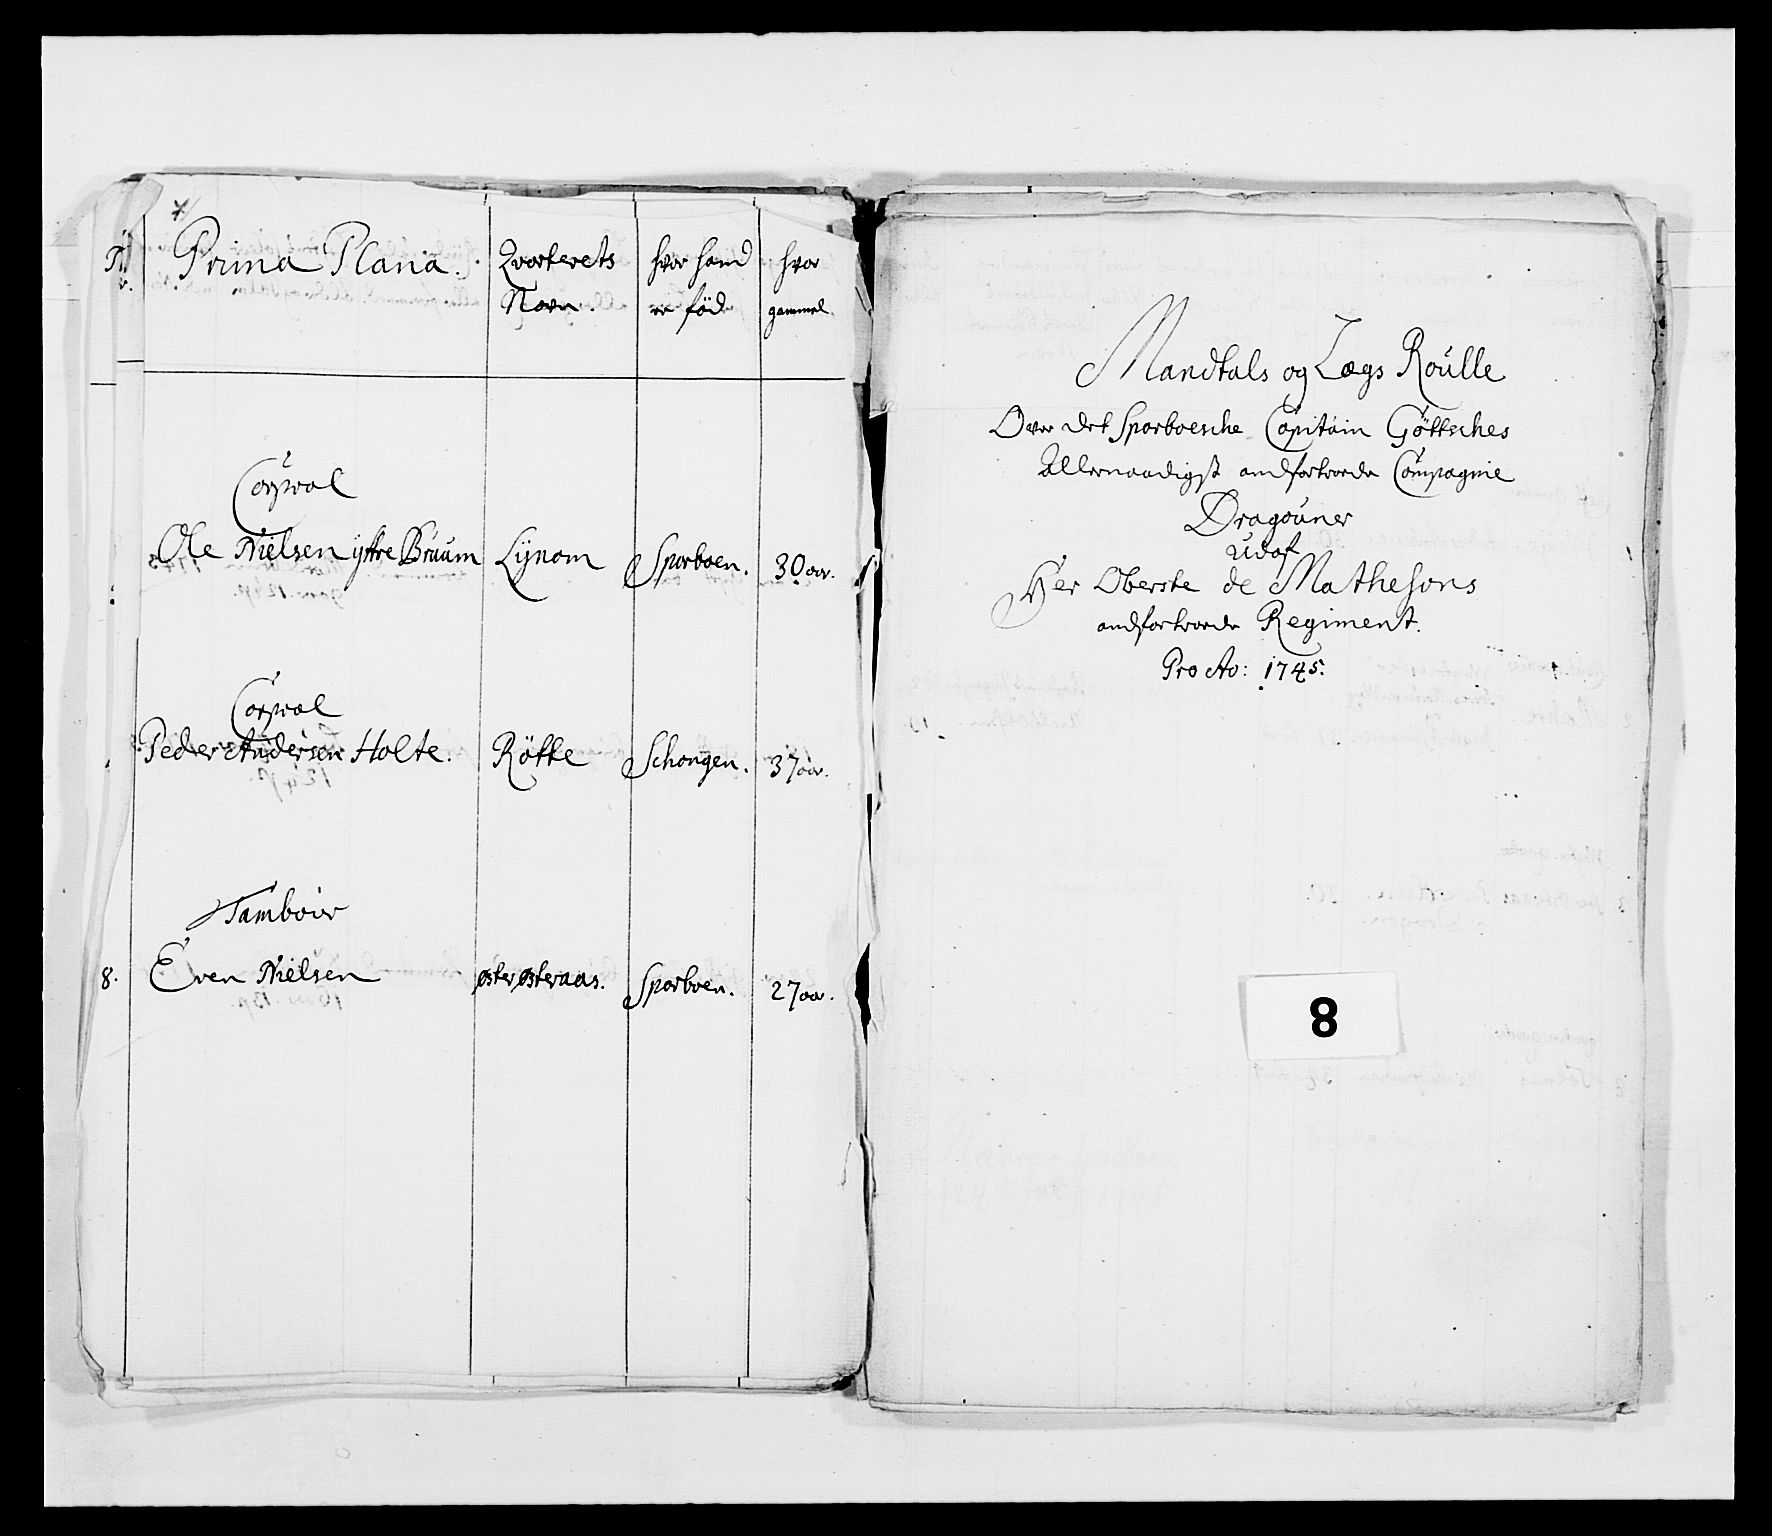 Prima Plana. Qvarterets hvor hand hvor
Navn. er föd gammel
Corporal
Ole Nielsen ÿttre Bruum Lÿnom Sparboen. 30 aar.
Corporal
Peder Andersen Holte. Rötte Schongen. 37 aar.
Tambour
8. Even Nielsen øster østeraas. Sparboen. 27 aar.
Mandtals og Lægs Roulle
Over det Sparboeshe Capitain Göttsches
Allernaadigst andfortroede Compagnie
Dragouner
Udaf
Her Oberste de Mathesons
andfortroede Regiment.
Pro Ao: 1745.
8